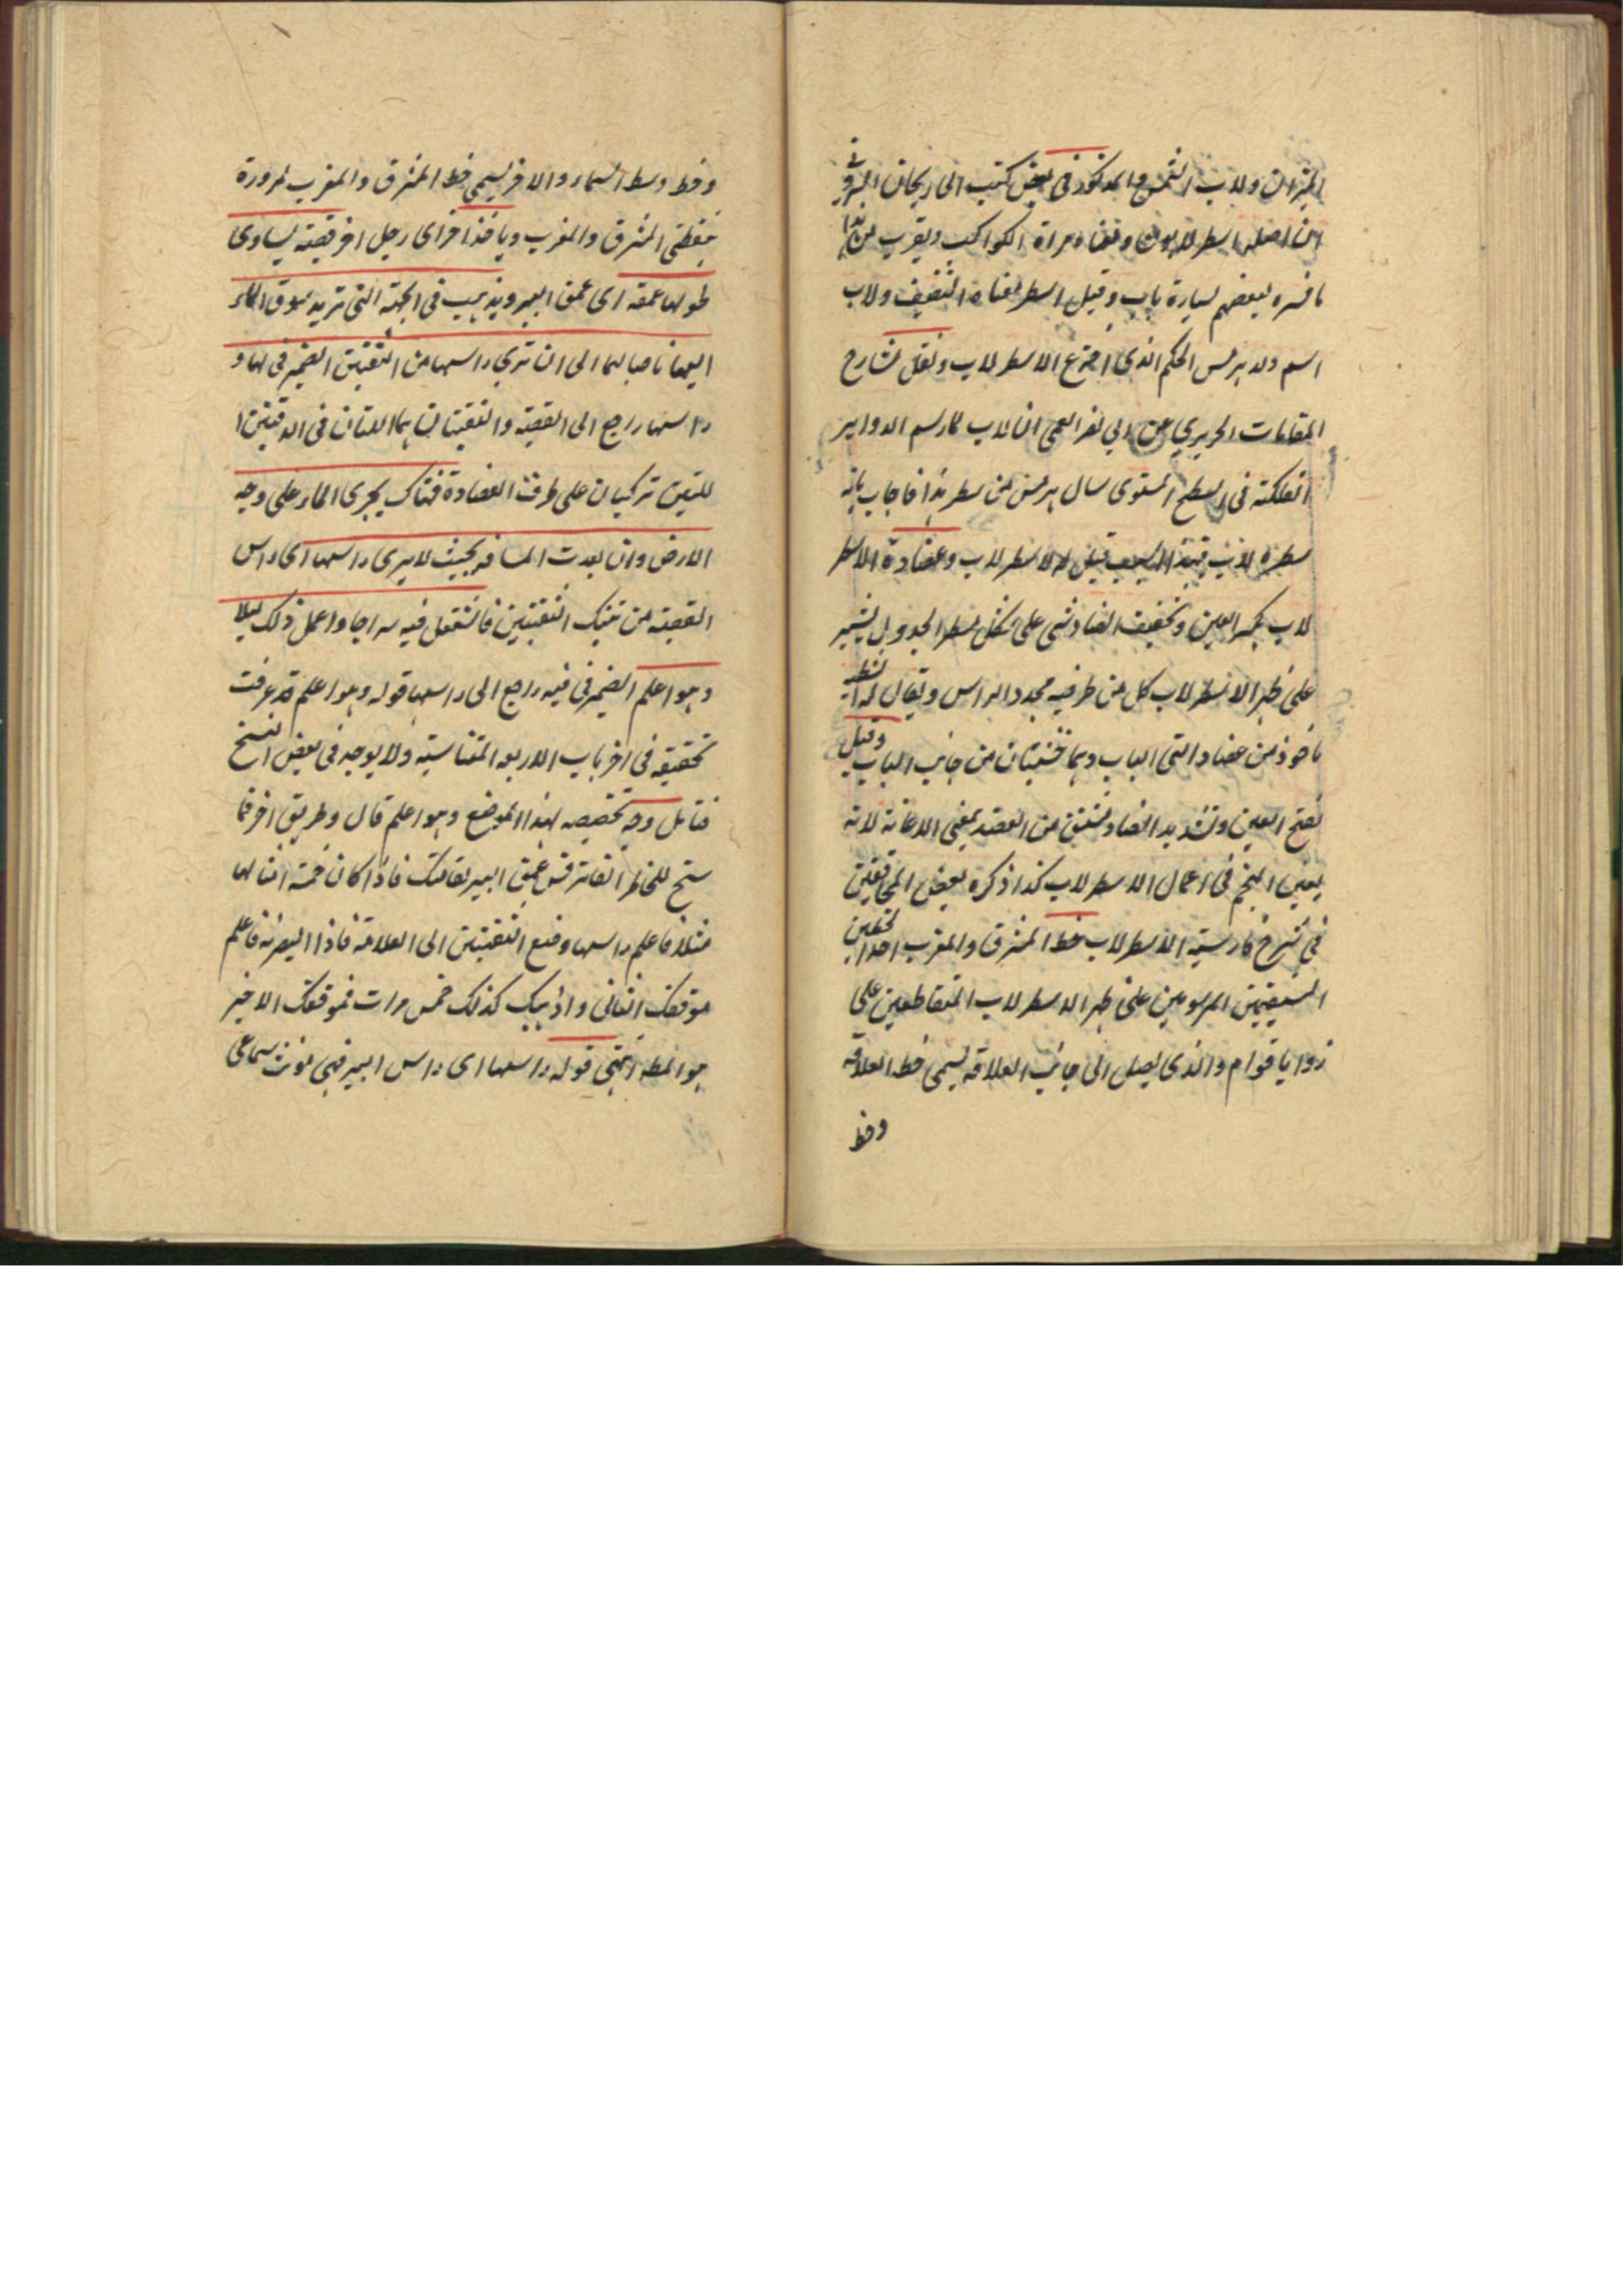 الميزان ولاب الشمس والمذكور في بعض كتب ابي ريحان البيروني
ان اصله اسطرلابون ومعناه مراة الكواكب ويقرب من هذا
ما فسره بعضهم لسيارة ياب وقيل اسطر معناه التصنيف ولاب
اسم ولد هرمس الحكيم الذي اخترع الاسطرلاب ونقل شارح
المقامات الحريري عن ابي نصر العمي ان لاب لما رسم الدواير
الفلكية في السطح المستوي سال هرمس من سطر هذا فاجاب بانه
سطره لاب فبهذا السبب قيل له الاسطرلاب وعضادة الاسطر
لاب بكسر العين وتخفيف الضاد شي على شكل مسطر الجدول يشير
على ظهر الاسطرلاب كل من طرفيه محدد الراس ويقال له
ماخوذ من عضادتي الباب وهما خشبتان من جانبي الباب وقيل
بفتح العين وتشديد الضاد مشتق من العضد بمعنى الاعانة لانه
يعين المنجم في اعمال الاسطرلاب كذا ذكره بعض المحققين
في شرح فارسية الاسطرلاب خط المشرق والمغرب احد الخطين
المستقيمين المرسومين على ظهر الاسطرلاب المتقاطعين على
زوايا قوايم والذي يصل الى جانب العلاقة يسمى خط العلاقة
وخط
وخط وسط السماء والاخر يسمى خط المشرق والمغرب لمروره
بنقطتي المشرق والمغرب وياخذ اخر اي رجل اخر قصبة يساوي
طولها عمقه اي عمق البير ويذهب في الجهة التي تريد سوق الماء
اليها ناصبا لها الى ان تري راسها من الثقبتين الضمير في لها و
راسها راجع الى القصبة والثقبتان هما اللتان في الدفتين ا
للتين تركبان على طرف العضادة فهناك يجري الماء على وجه
الارض وان بعدت المسافة بحيث لا يرى راسها اي راس
القصبة من تينك الثقبتين فاشتعل فيه سراجا واعمل ذلك ليلا
وهو اعلم الضمير في فيه راجع الى راسها قوله وهو اعلم قد عرفت
تحقيقه في اخر باب الاربعة المتناسبة ولا يوجد في بعض النسخ
فتامل وجه تخصيصه بهذا الموضع وهو اعلم قال وطريق اخر مما
سنح للخاطر الفاتر قس عمق البير بقامتك فاذا كان خمسة امثالها
مثلا فاعلم راسها وضع الثقبتين الى العلاقة فاذا ابصرته فاعلم
موقفك الثاني واذهب كذلك خمس مرات فموقفك الاخير
هو المط انتهى قوله راسها اي راس البير فهي مونث سماعي